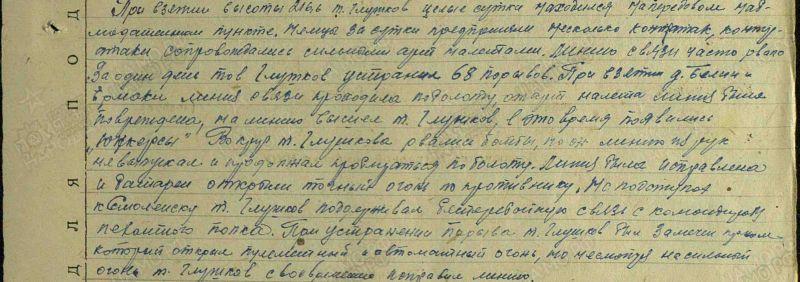 При взятии высоты 216,6 т. Глушков целые сутки находился на передовом наб-
людательном пункте. Немцы за сутки предприняли несколько контратак, контр-
атаки сопровождались сильными арт налетами. Линию связи часто рвало
За один день тов Глушков устранил 68 порывов. При взятии д. и
Ермаки линия связи проходила по болоту, от арт налета линия была
повреждена, на линию вышел т. Глушков, в это время появились
„Юнкерсы" Вокруг т. Глушкова рвались бомбы, но он линию из рук
не выпускал и продолжал продвигаться по болоту. Линия была исправлена
и батареи открыли точный огонь по противнику. На подступах
к Смоленску т. Глушков поддерживал бесперебойную связь с командиром
полка. При устранении порыва т. Глушков был замечен
который открыл пулеметный и автоматный огонь, но несмотря на сильный
огонь т. Глушков своевременно исправил линию.
ДЛЯ ПОД